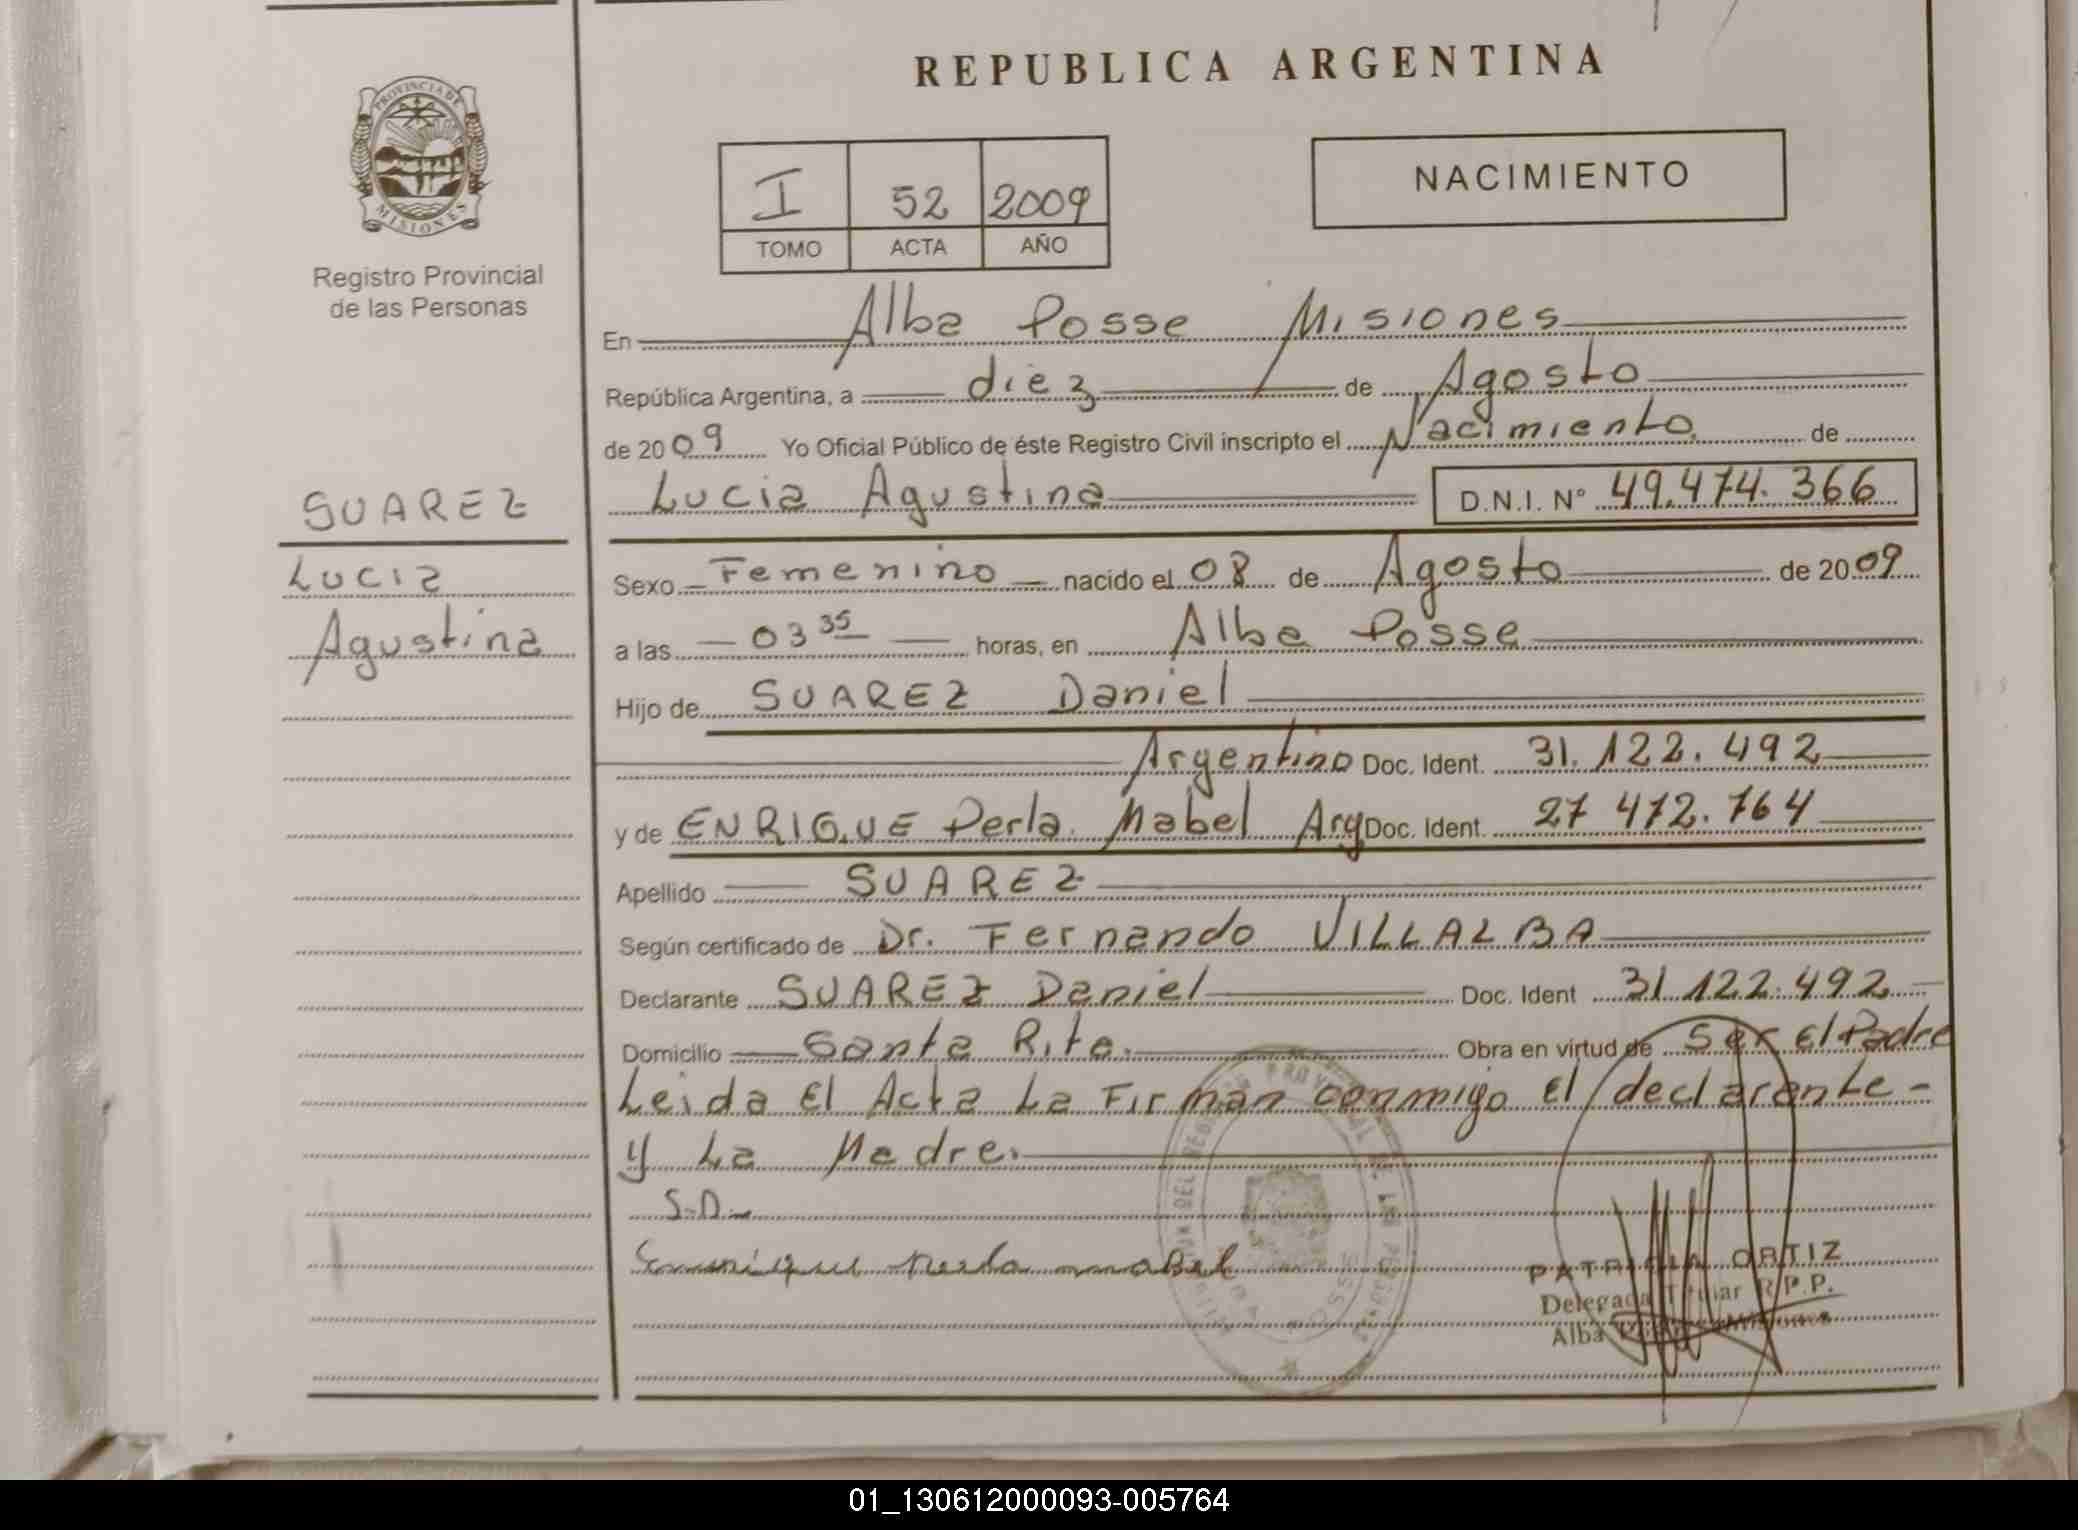 REPUBLICA ARGENTINA
PROVINCIA DE
MISIONES
Registro Provincial
de las Personas
I 52 2009
TOMO ACTA AÑO
NACIMIENTO
En Alba Posse Misiones
República Argentina, a diez de Agosto
de 2009 Yo Oficial Público de éste Registro Civil inscripto el Nacimiento de
Lucia Agustina D.N.I. Nº 49.474.366
SUAREZ
Lucia
Agustina
Sexo Femenino nacido el 08 de Agosto de 2009
a las 03 35 horas, en Alba Posse
Hijo de SUAREZ Daniel
Argentino Doc. Ident. 31.122.492
y de ENRIQUE Perla Mabel Arg Doc. Ident. 27 472.764
Apellido SUAREZ
Según certificado de Dr. Fernando VILLALBA
Declarante SUAREZ Daniel Doc. Ident 31.122.492
Domicilio Santa Rita. Obra en virtud de Ser El Padre
Leida El Acta La Firman conmigo El declarante -
y La Madre.
S.D.
Enrique Perla Mabel
PATRICIA ORTIZ
Delegada Titular R.P.P.
Alba Posse Misiones
01_130612000093-005764